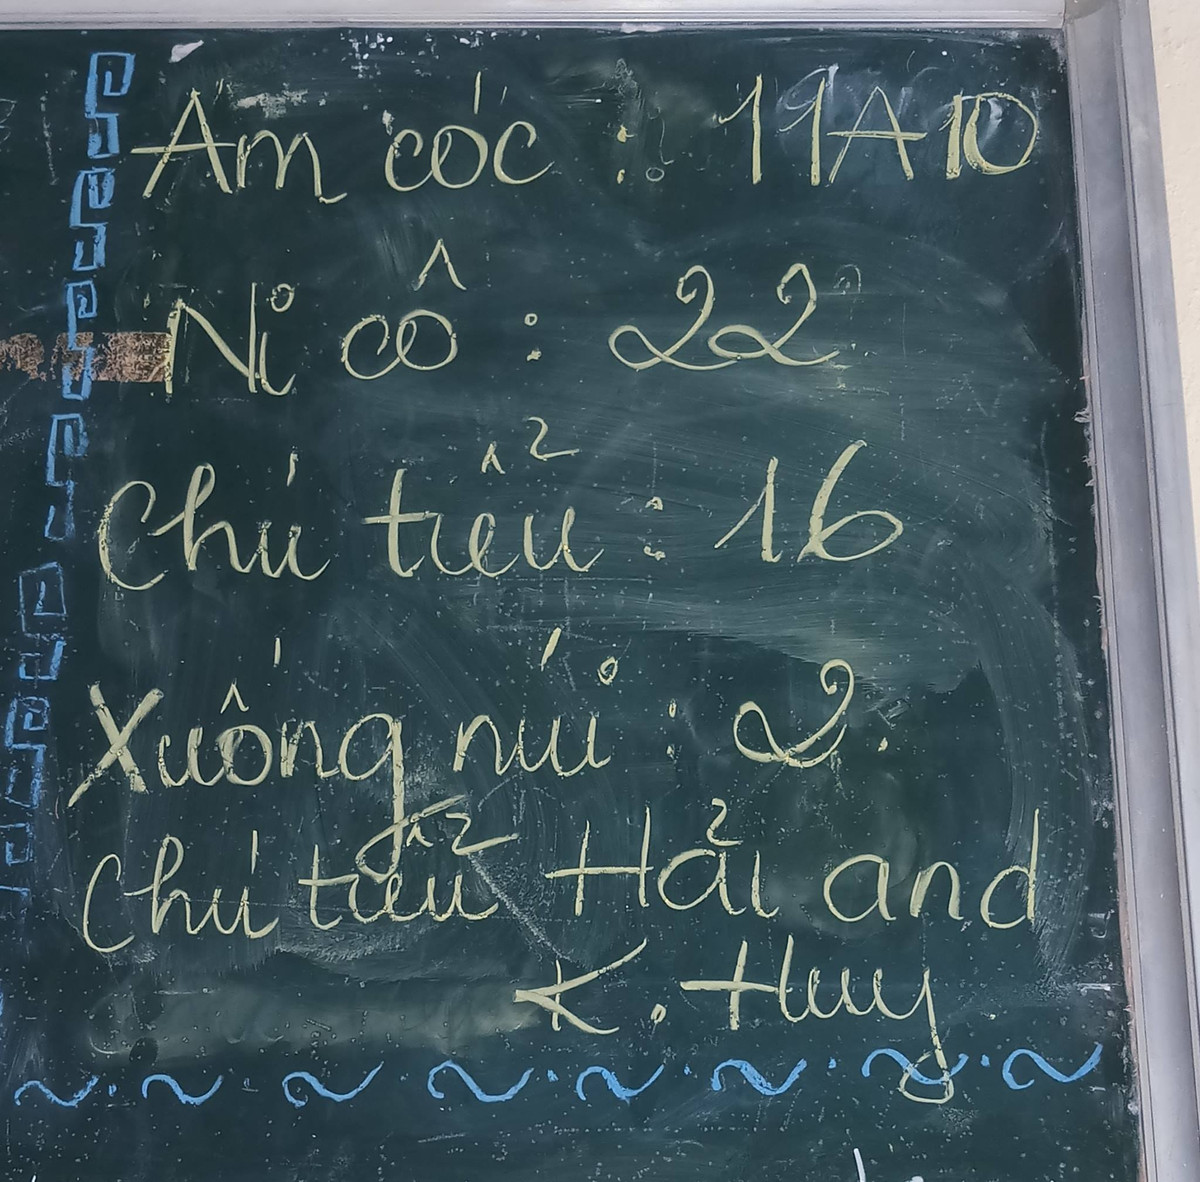 Am cóc : 19A10
Ni cô : 22
Chú tiểu : 16
Xuống núi : 2.
Chú tiểu Hải and
K. Huy